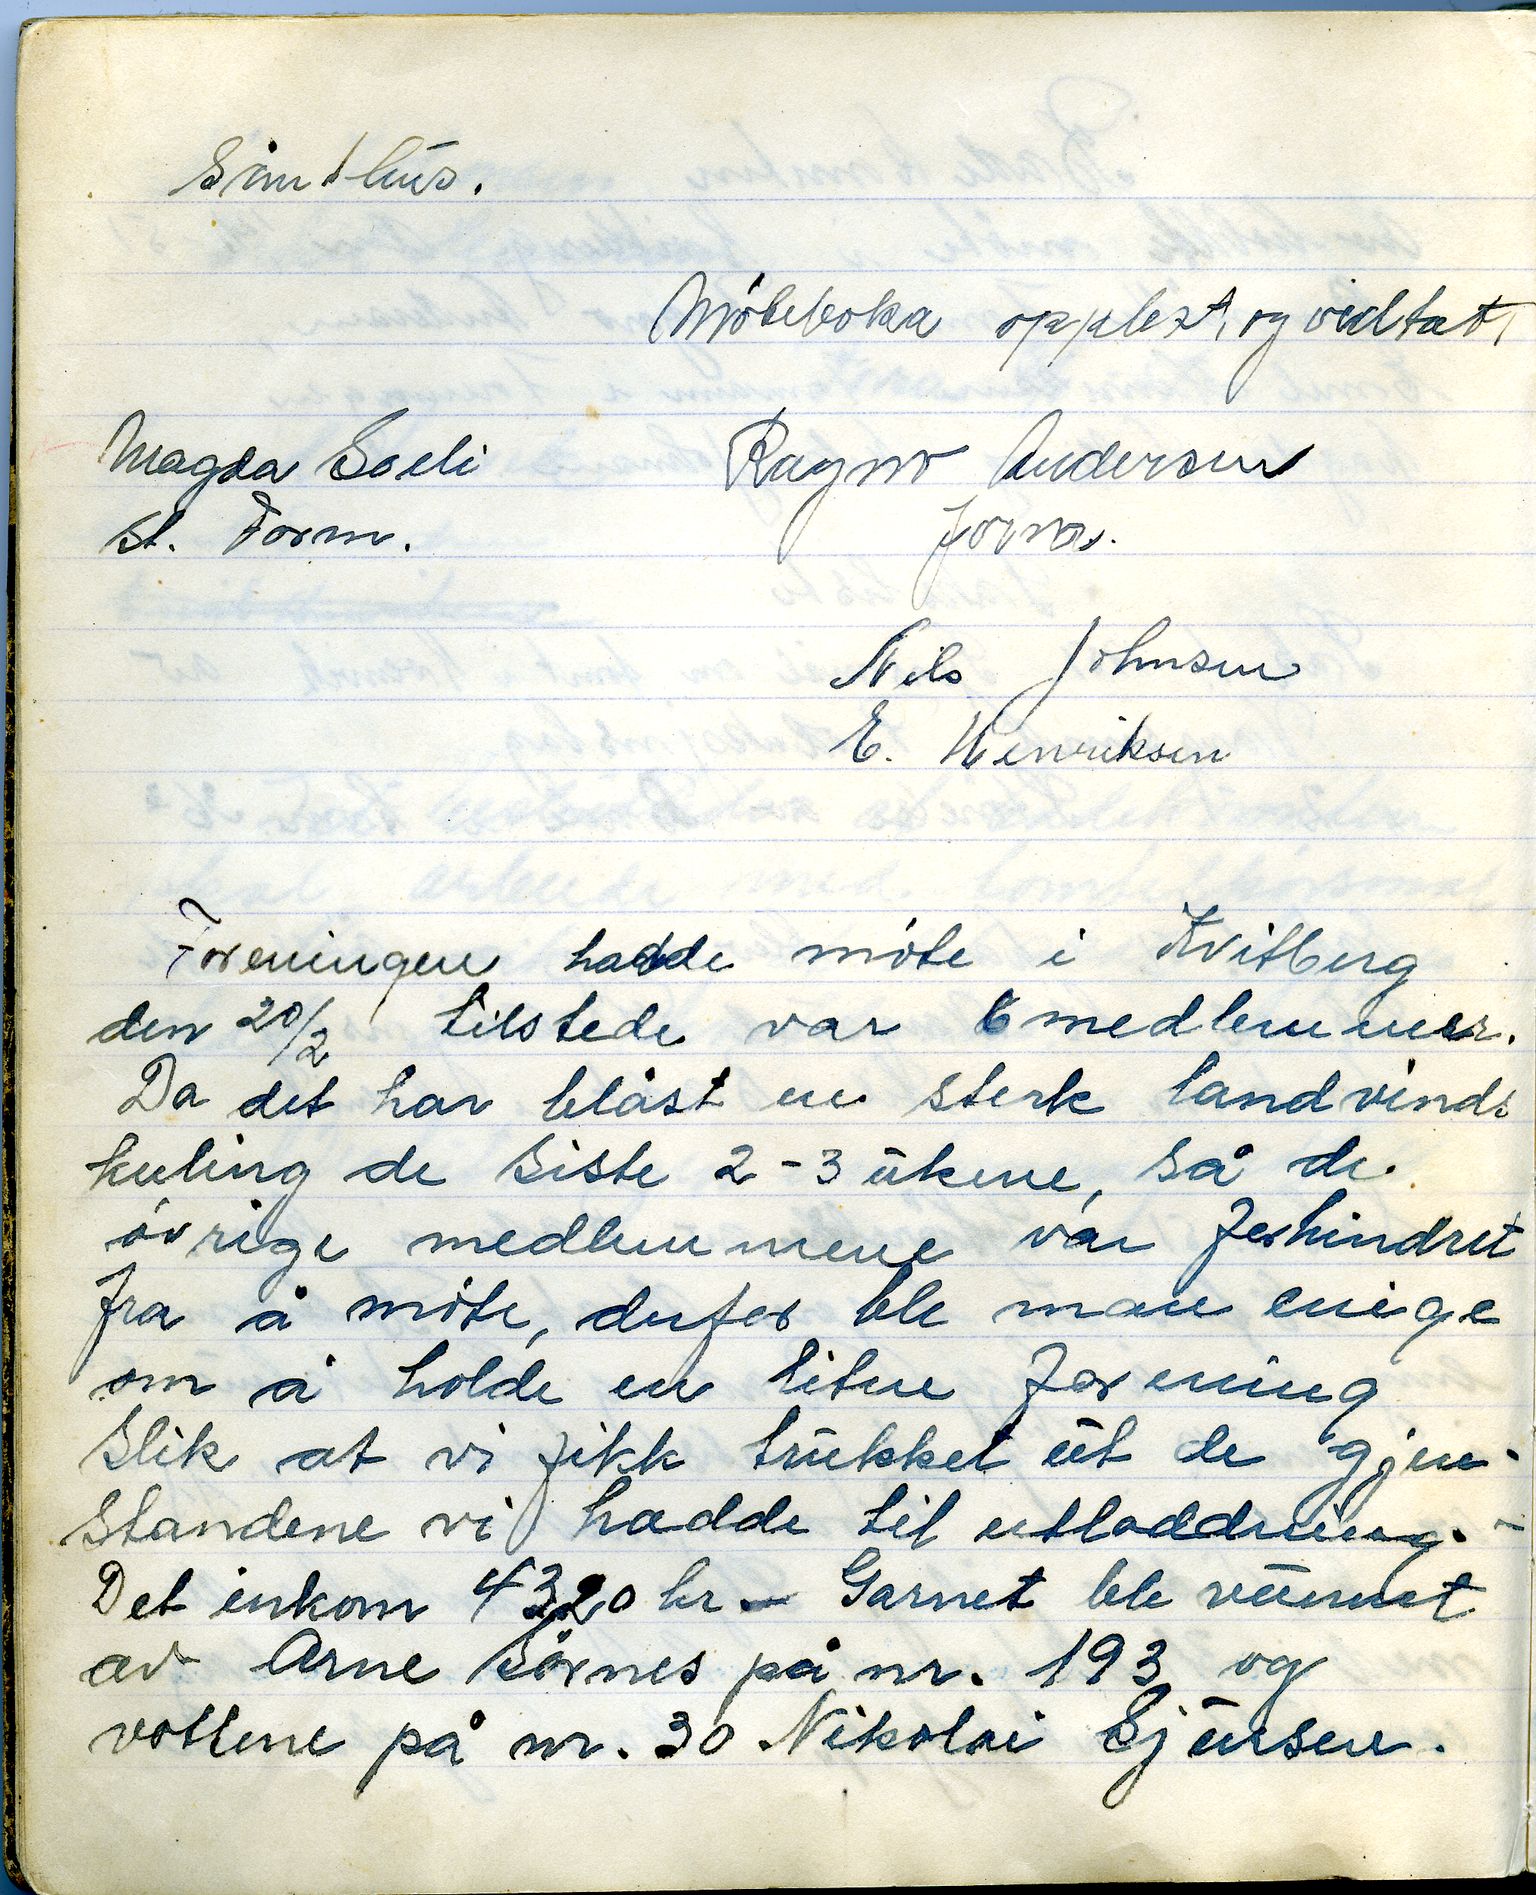 Möteboka opplest, og vedtat,
Magda Soeli
st. Form.
Ragnv Andersen
forva.
Nils Johnsen
E. Henriksen
Foreningen hadde möte i Kvitberg
den 20/2 tilstede var 6 medlemmer.
Da det har blåst en sterk landvinds
kuling de siste 2-3 ukene, så de
övrige medlemmene var forhindret
fra å möte, derfor ble man enige
om å holde en liten forening
slik at vi fikk trukket ut de gjen-
standene vi hadde til utloddning. -
Det inkom 4320 kr - Garnet ble vunnet
av Arne Sörnes på nr. 193 og
vottene på nr. 30 Nikolai Sjursen.